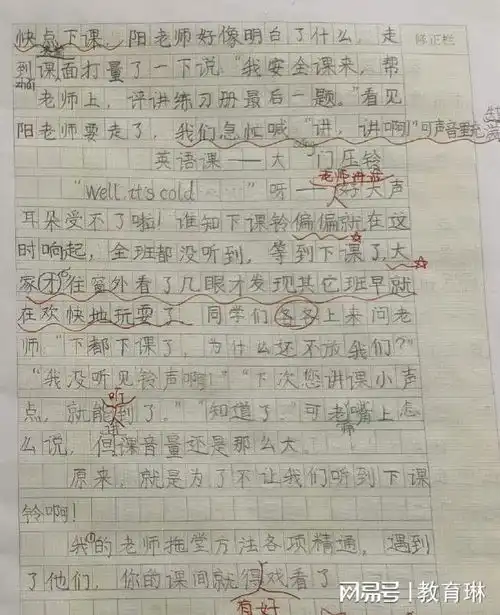 快点下课，阳老师好像明白了什么，走
到课面打量了一下说“我安全课来，帮
老师上，评讲练习册最后一题。”看见
阳老师要走了，我们急忙喊“讲，讲啊”可声音里
英语课——大门压铃
老师讲话
“Well, it's cold”呀——好大声
耳朵受不了啦！谁知下课铃偏偏就在这
时响起，全班都没听到，等到下课了，大
家才往窗外看了几眼才发现其它班早就
在欢快地玩耍了。同学们各各上来问老
师“下都下课了，为什么还不放我们？”
“我没听见铃声啊！”“下次您讲课小声
点，就能听到了。”“知道了。”可老师嘴上怎
么说，但课音量还是那么大。
原来，就是为了不让我们听到下课
铃啊！
我的老师拖堂方法各项精通，遇到
了他们，你的课间就得戏看了
有好
修正栏
网易号 | 教育琳